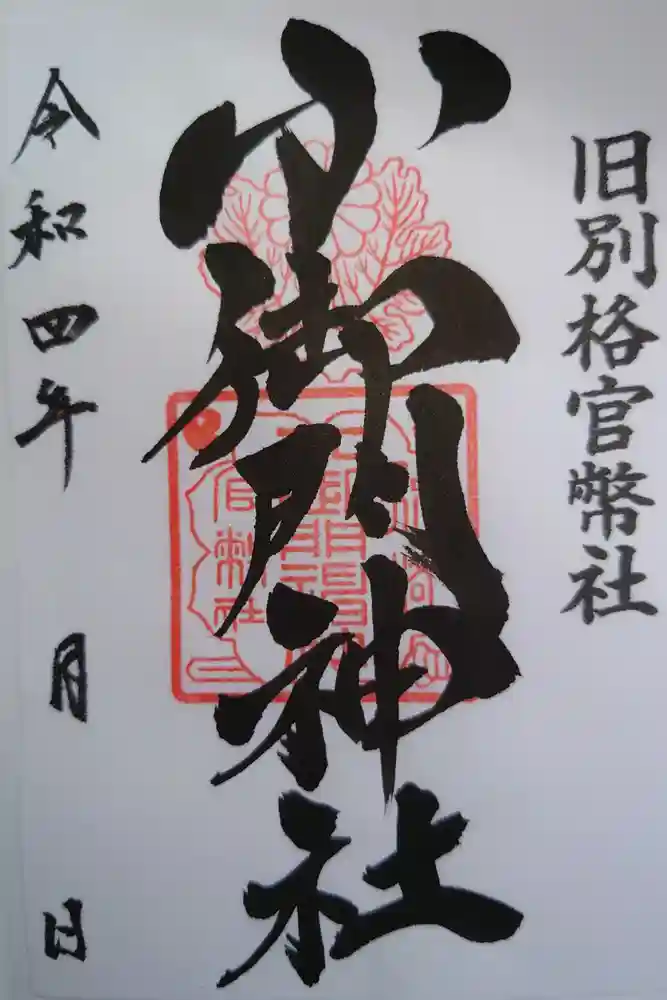 旧別格官幣社
小御門神社
令和四年 月 日